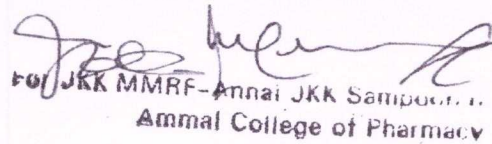 For JKK MMRF-Annai JKK
Ammal College of Pharmacy